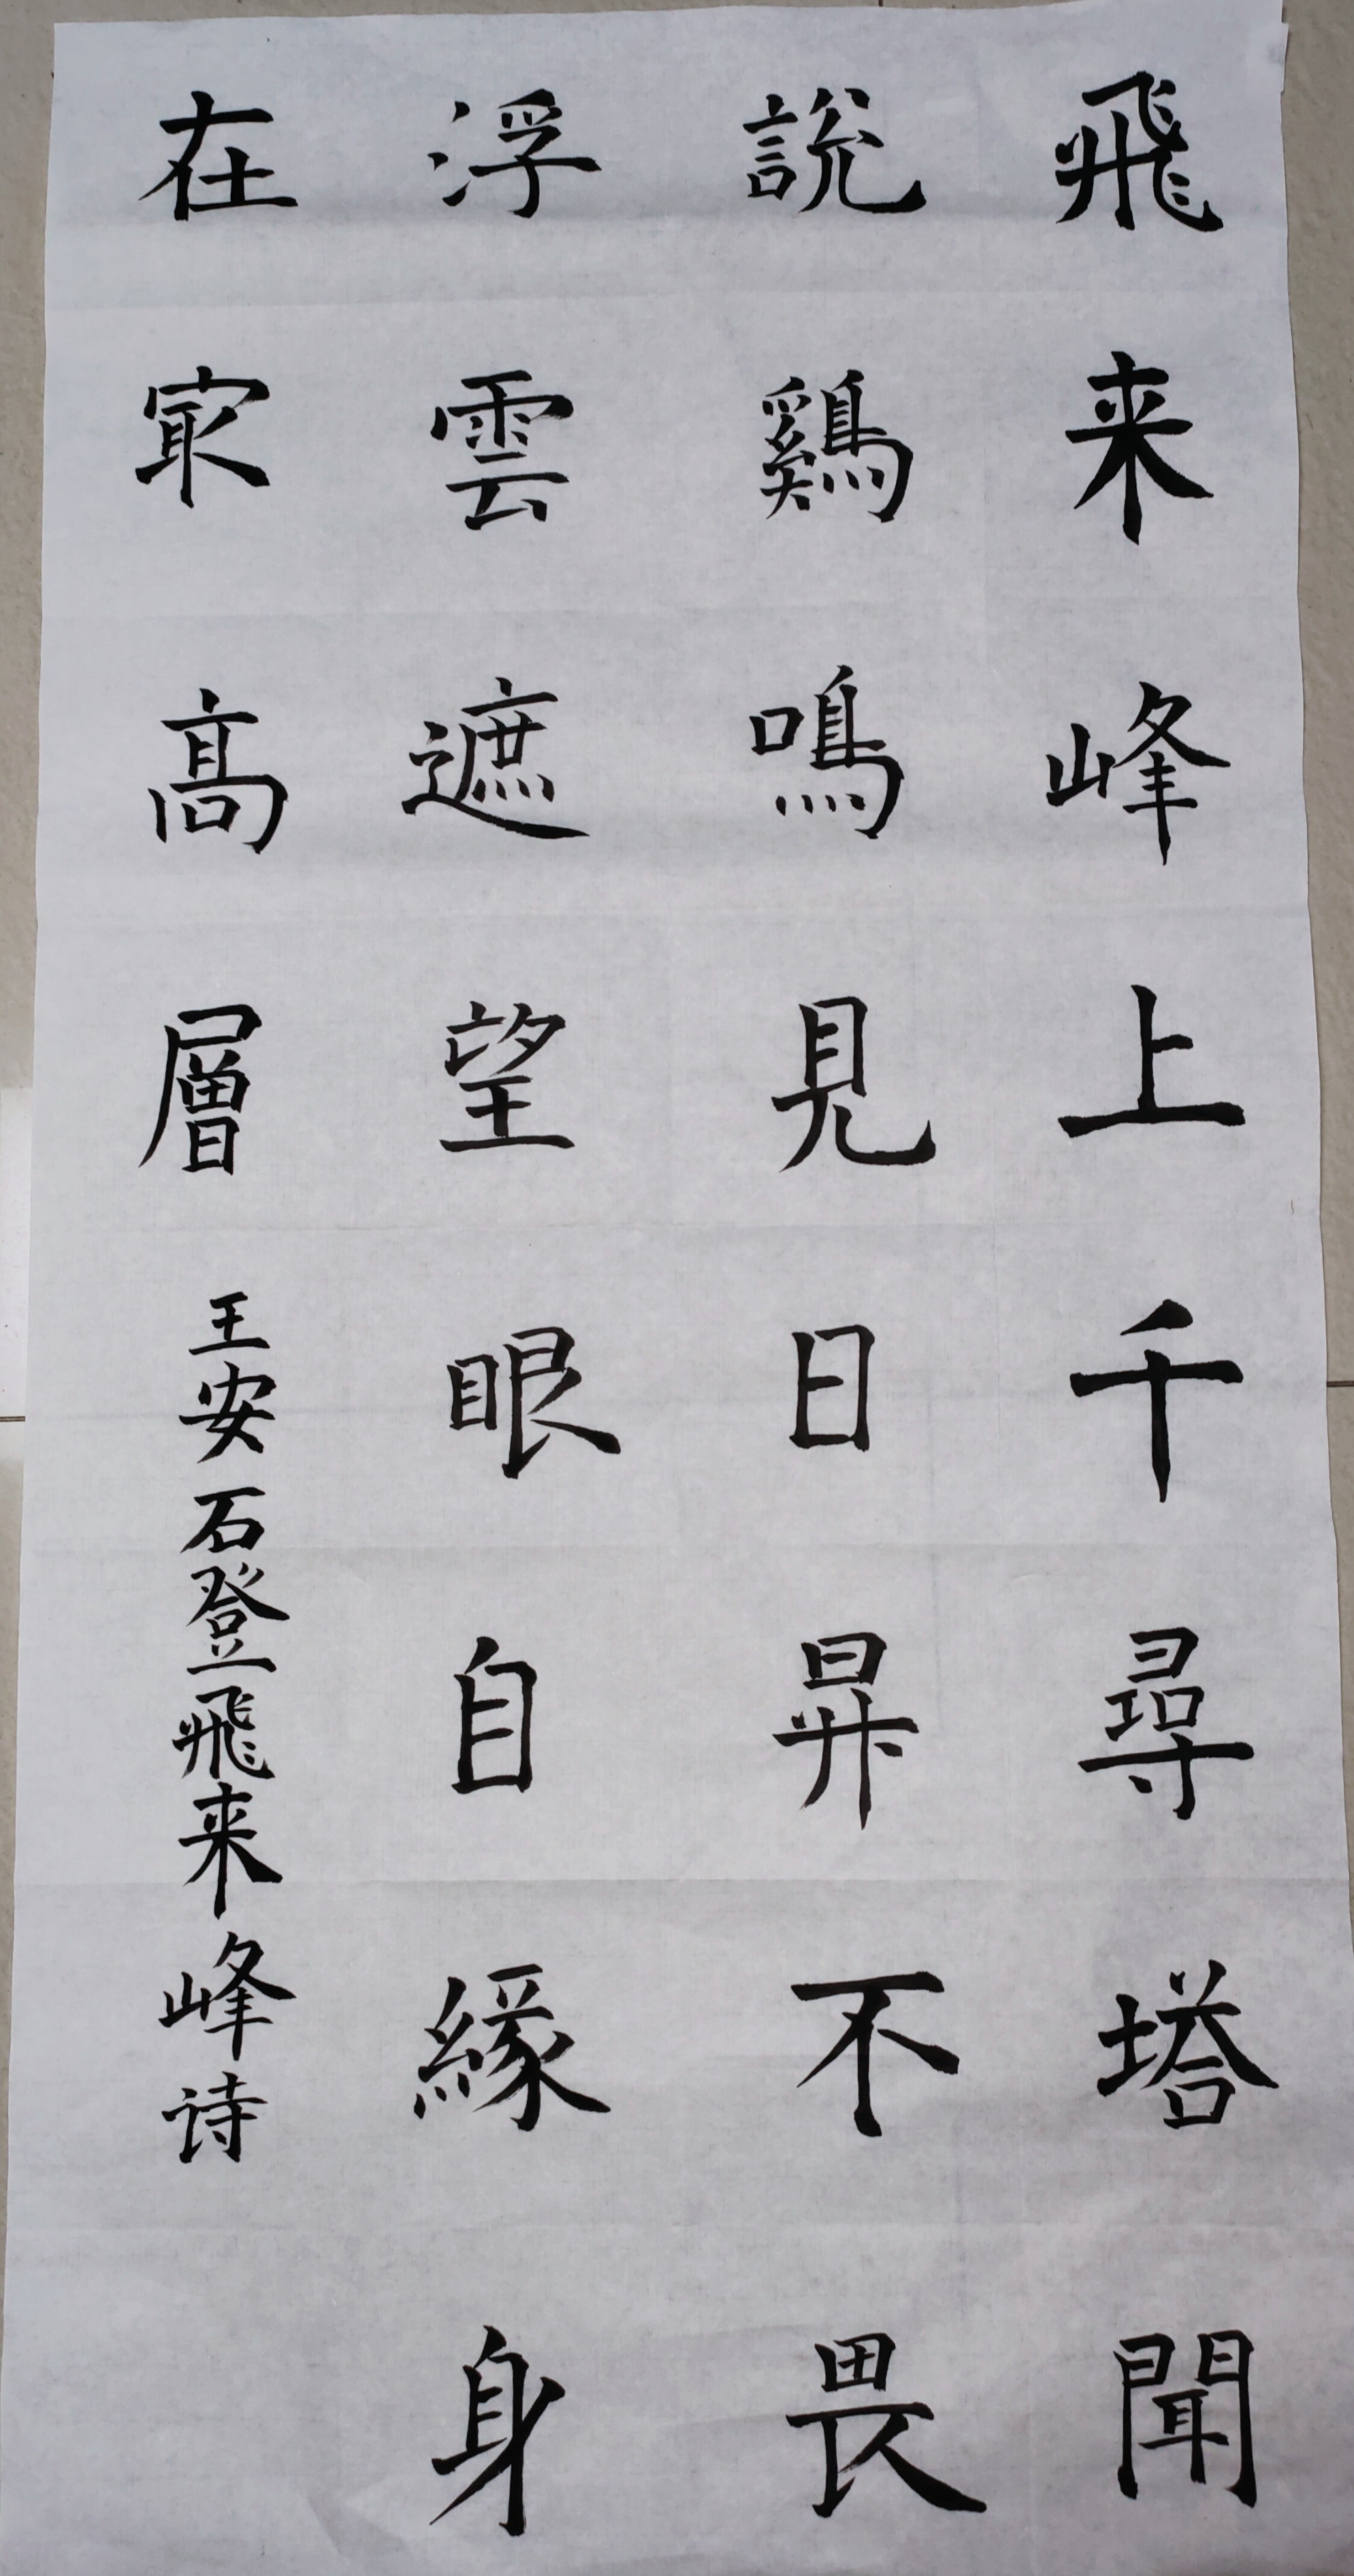 飛来峰上千尋塔聞
說鷄鳴見日昇不畏
浮雲遮望眼自緣身
在冣高層
王安石登飛来峰诗